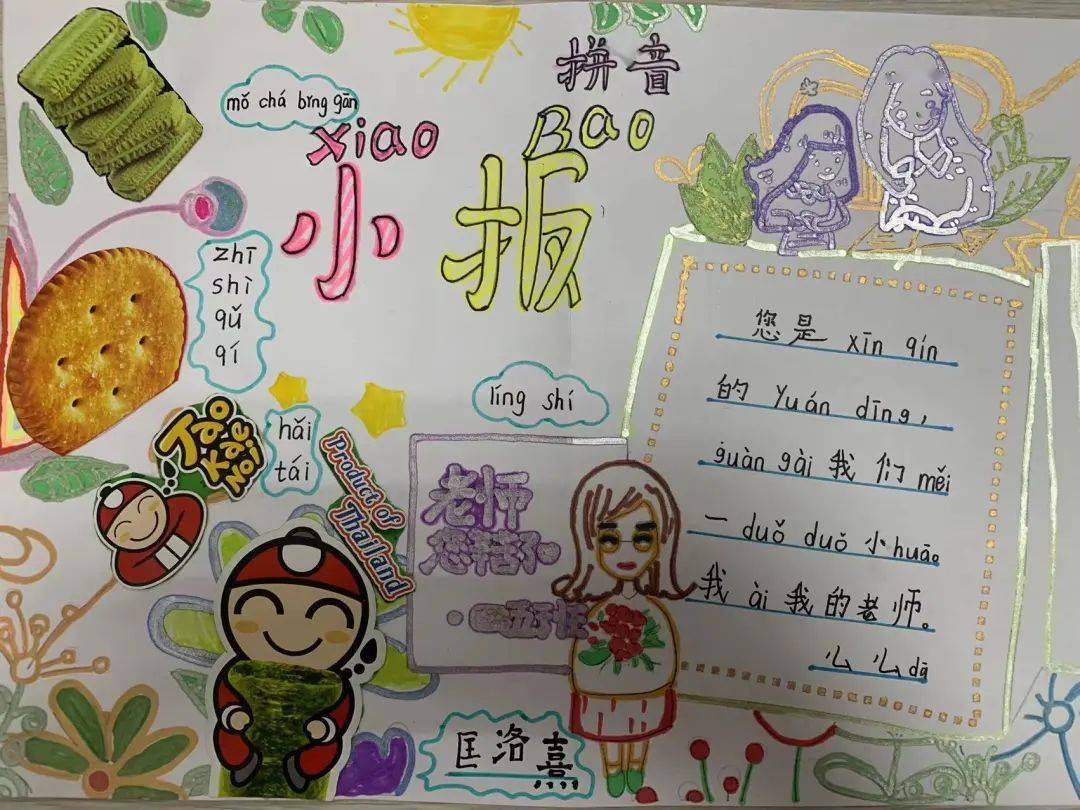 拼音
mǒ chá bǐng gān
xiao Bao
小扳
zhī
shì
qǔ
qí
líng shí
hǎi
tái
Tao
Kae
Noi
Product of
Thailand
老师
您是 xīn qín
的 Yuán dīng，
guàn gài 我们 měi
一 duǒ duǒ 小 huā。
我 ài 我的老师。
么么 dā
匡洛熹